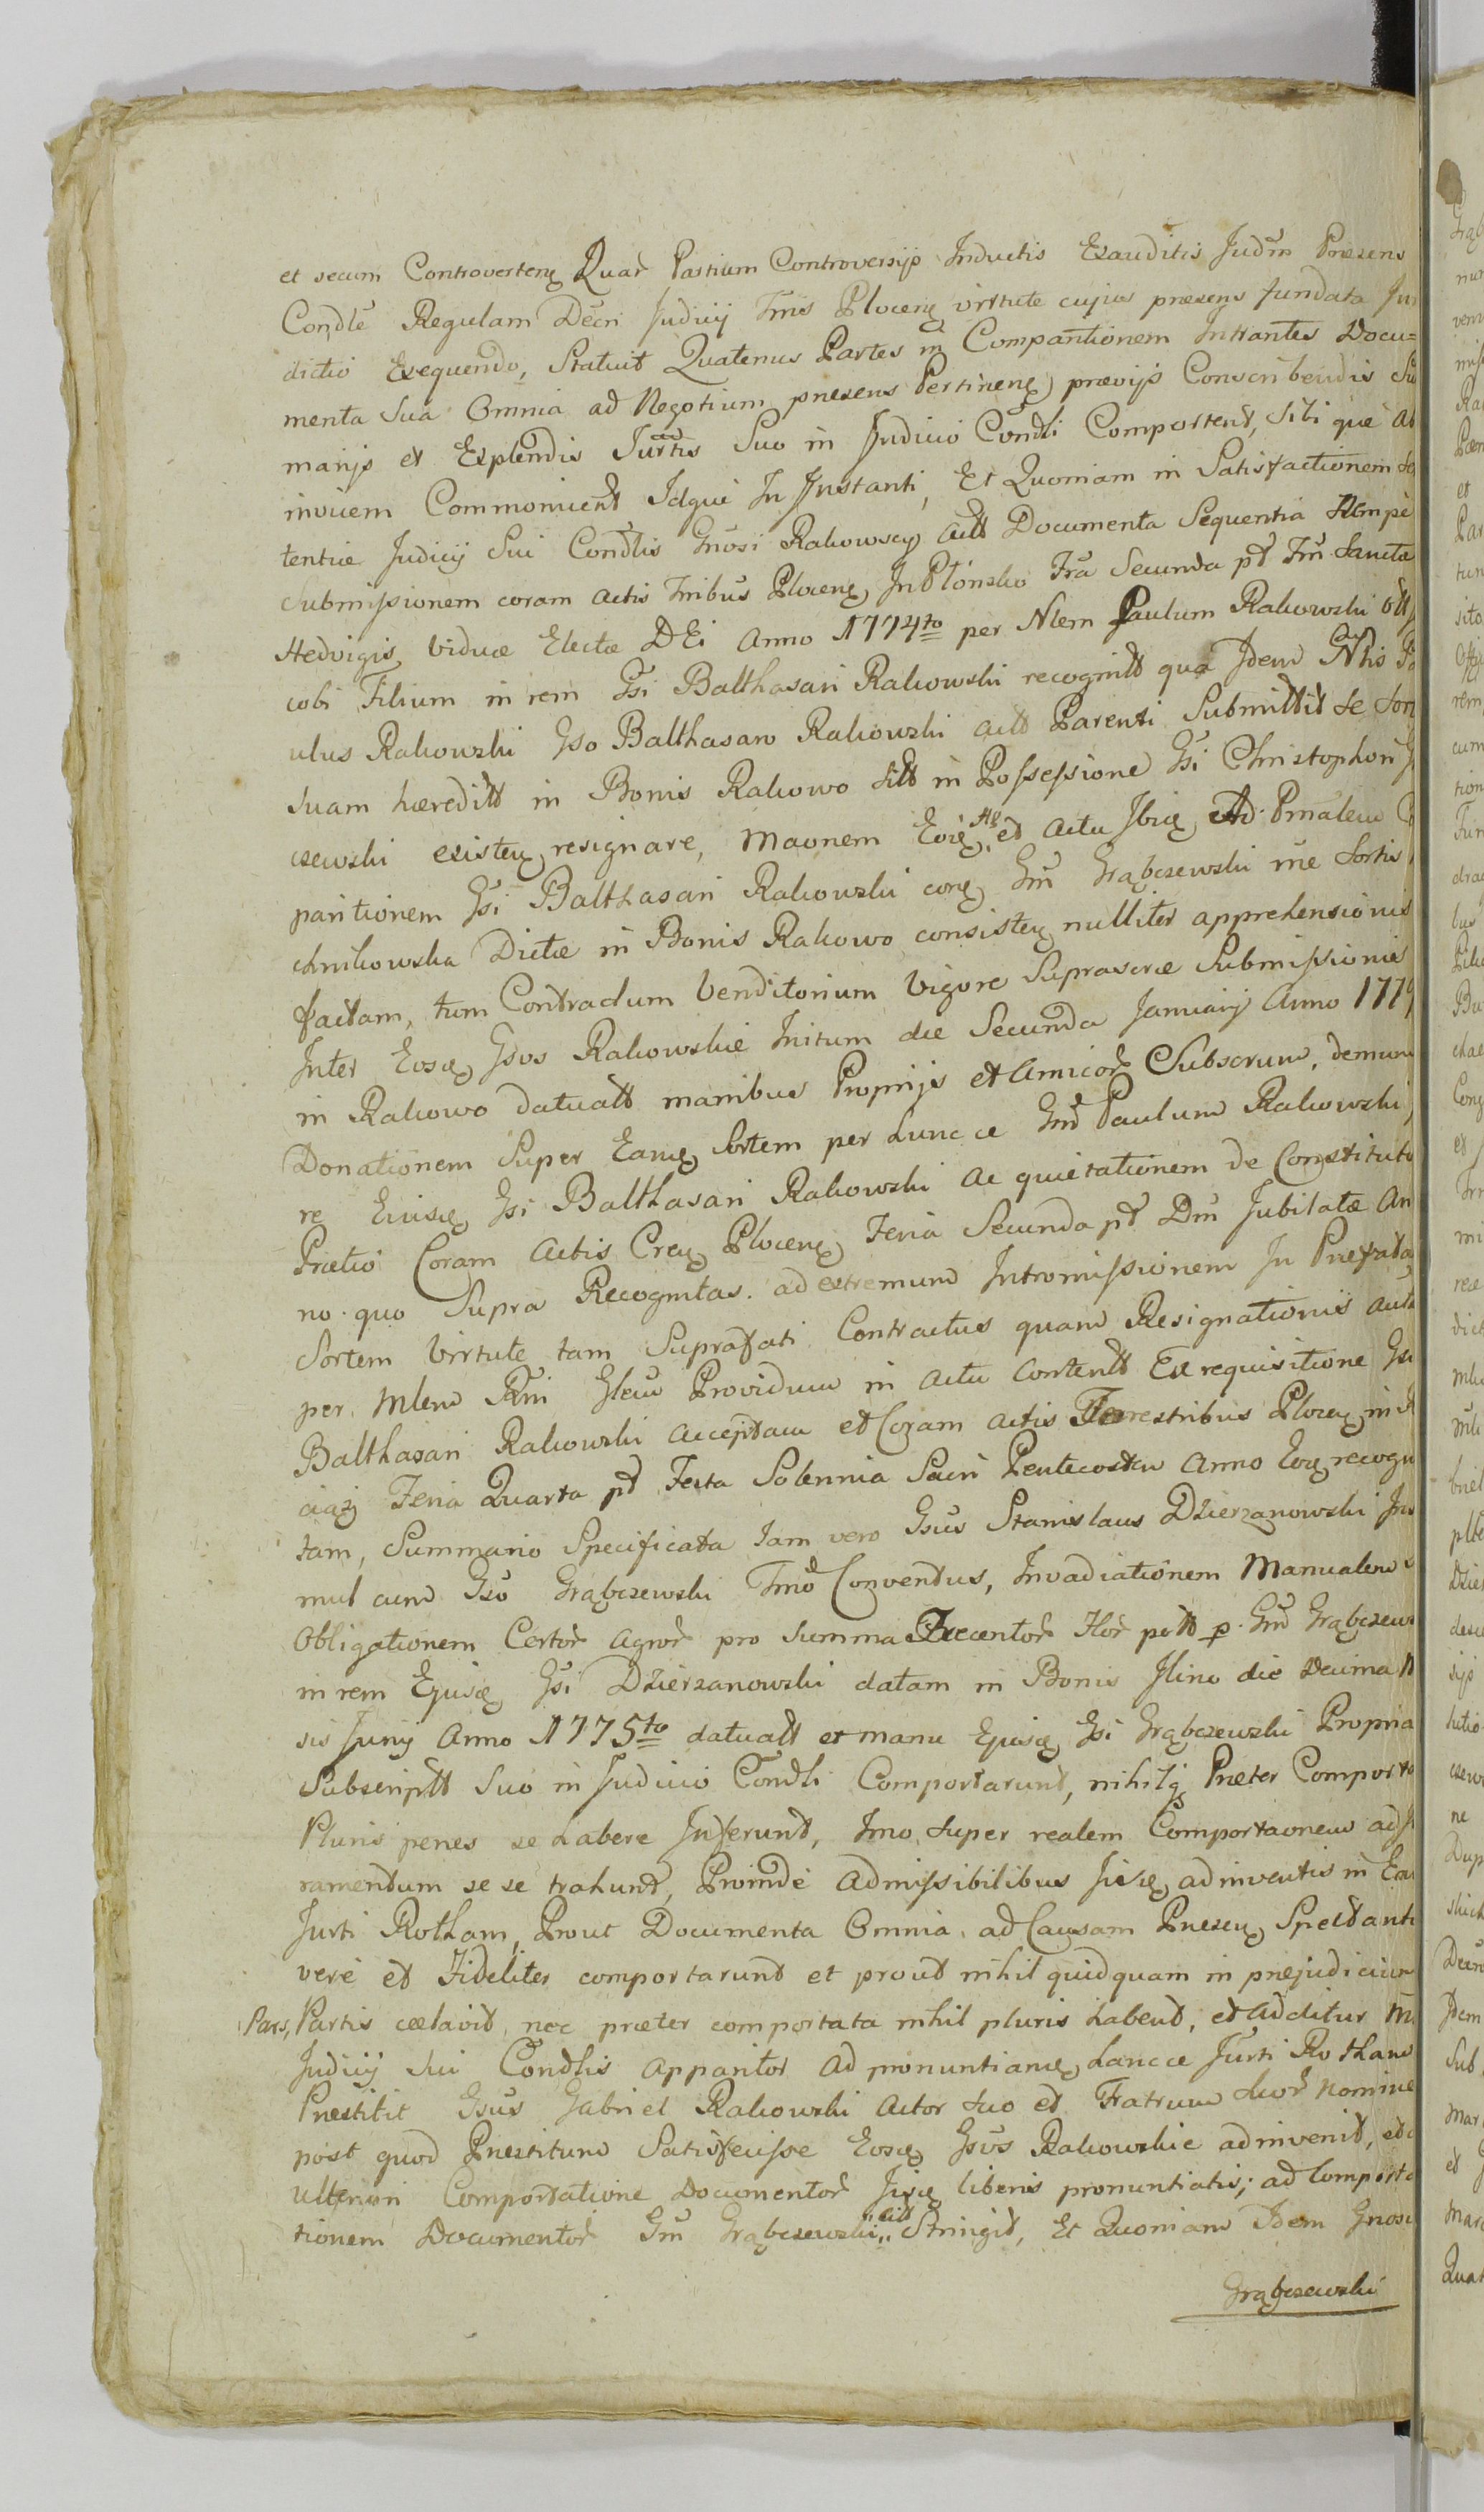 et secum Controverteñ Quar Partium Controversijs Inductis Exauditis Judm Præsens
Condle Regulam Decri Judicij Tmis Ploceñ virtute cujus præsens fundata Juri
dictio Exequendo, Statuit Quatenus Partes in Comparitionem Intrantes Docu=
menta Sua Omnia ad Negotium præsens Pertineñ prævijs Conscribendis Su
marijs et Explendis Jurtis Suo in Judicio Condli Comportent, sibi que ad
invicem Commonicent Idque In Instanti, Et Quoniam in Satisfactionem Se
tentiæ Judicij Sui Condlis Gnosi Rakowscy Actt Documenta Sequentia Nempe
Submissionem coram Actis Tribus Ploceñ In Płońsko Fra Secunda pt Fm Sanctæ
Hedvigis Viduæ Electæ DEi Anno 1774to per Nlem Paulum Rakowski olt
cobi Filium in rem Gsi Balthasari Rakowski recognitt qua Idem Nlis Pa
ulus Rakowski Gso Balthasaro Rakowski actt Parenti Submittit Se Sor
Suam hæreditt in Bonis Rakowo Sitt in Possessione Gsi Christophori
czewski existeñ resignare, Maonem et Actu Ad Pmalem
paritionem Gsi Balthasari Rakowski Gm Grąbczewski Sortis
chnikowska Dictæ in Bonis Rakowo consisteñ nulliter apprehensionis
factam, tum Contractum Venditorium Vigore Suprascræ Submissionis
Inter Eosdeñ Gsos Rakowskie Initum die Secunda Januarij Anno 177
in Rakowo datuatt manibus Proprijs et Amicor Subscrum, demum
Donationem Super Eamdeñ Sortem per Hunc ce Gm Paulum Rakowski
re Ejusdeñ Gsi Balthasari Rakowski ac quietationem de Constituto
Prætio Coram Actis Creñ Ploceñ Feria Secunda pt Dm Jubilatæ An
no quo Supra Recognitas. ad extremum Intromissionem In Præfata
Sortem Virtute tam Suprafati Contractus quam Resignationis
per Mlem Rni Glem Providum in actu Contentt Ex requisitione Gsi
Balthasari Rakowski acceptam et Coram Actis Terrestribus Ploceñ
Feria Quarta pt Festa Solennia Sacri Pentecosten Anno recogni
tam, Summario Specificata Jam vero Gsus Stanislaus Dzierzanowski
mul cum Gso Grąbczewski Tmo Conventus, Invadiationem Manualem
Obligationem Certor Agror pro Summa Trecentor Flor p Gm Grąbczew
in rem Ejusdeñ Gsi Dzierzanowski datam in Bonis Ilino die Decima
sis Junij Anno 1775to datuatt et manu Ejusdeñ Gsi Grąbczewski Propria
Subscriptt Suo in Judicio Condli Comportarunt, nihilq Præter Comporta
Pluris penes se habere Inferunt, Imo Super realem Comportaonem ad Ju
ramentum se se trahunt, Proinde Admissibilibus adinventis in Eam
Jurti Rotham, Prout Documenta Omnia ad Causam Præseñ Spectantia
vere et Fideliter comportarunt et prout nihil quidquam in præjudicium
Pars, Partis cœlavit nec præter comportata nihil pluris habent, et Additur
Judicij Sui Condlis Apparitor Ad pronuntiandeñ hancce Jurti Rotham
Præstitit Gsus Gabriel Rakowski Actor Suo et Fratrum Suor nomine
post quod Præstitum Satisfecisse Eosdeñ Gsos Rakowskie adinvenit, et
Ulteriori Comportatione Documentor liberis pronuntiatis; ad Comporta
tionem Documentor Gm Grąbczewski citt Stringit, Et Quoniam Idem Gnosus
Grąbczewski